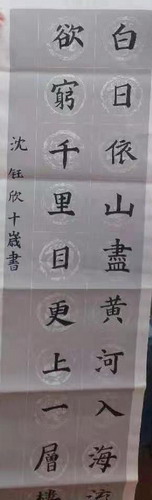 白日依山盡黃河入海流
欲窮千里目更上一層樓
沈鈺欣十歲書